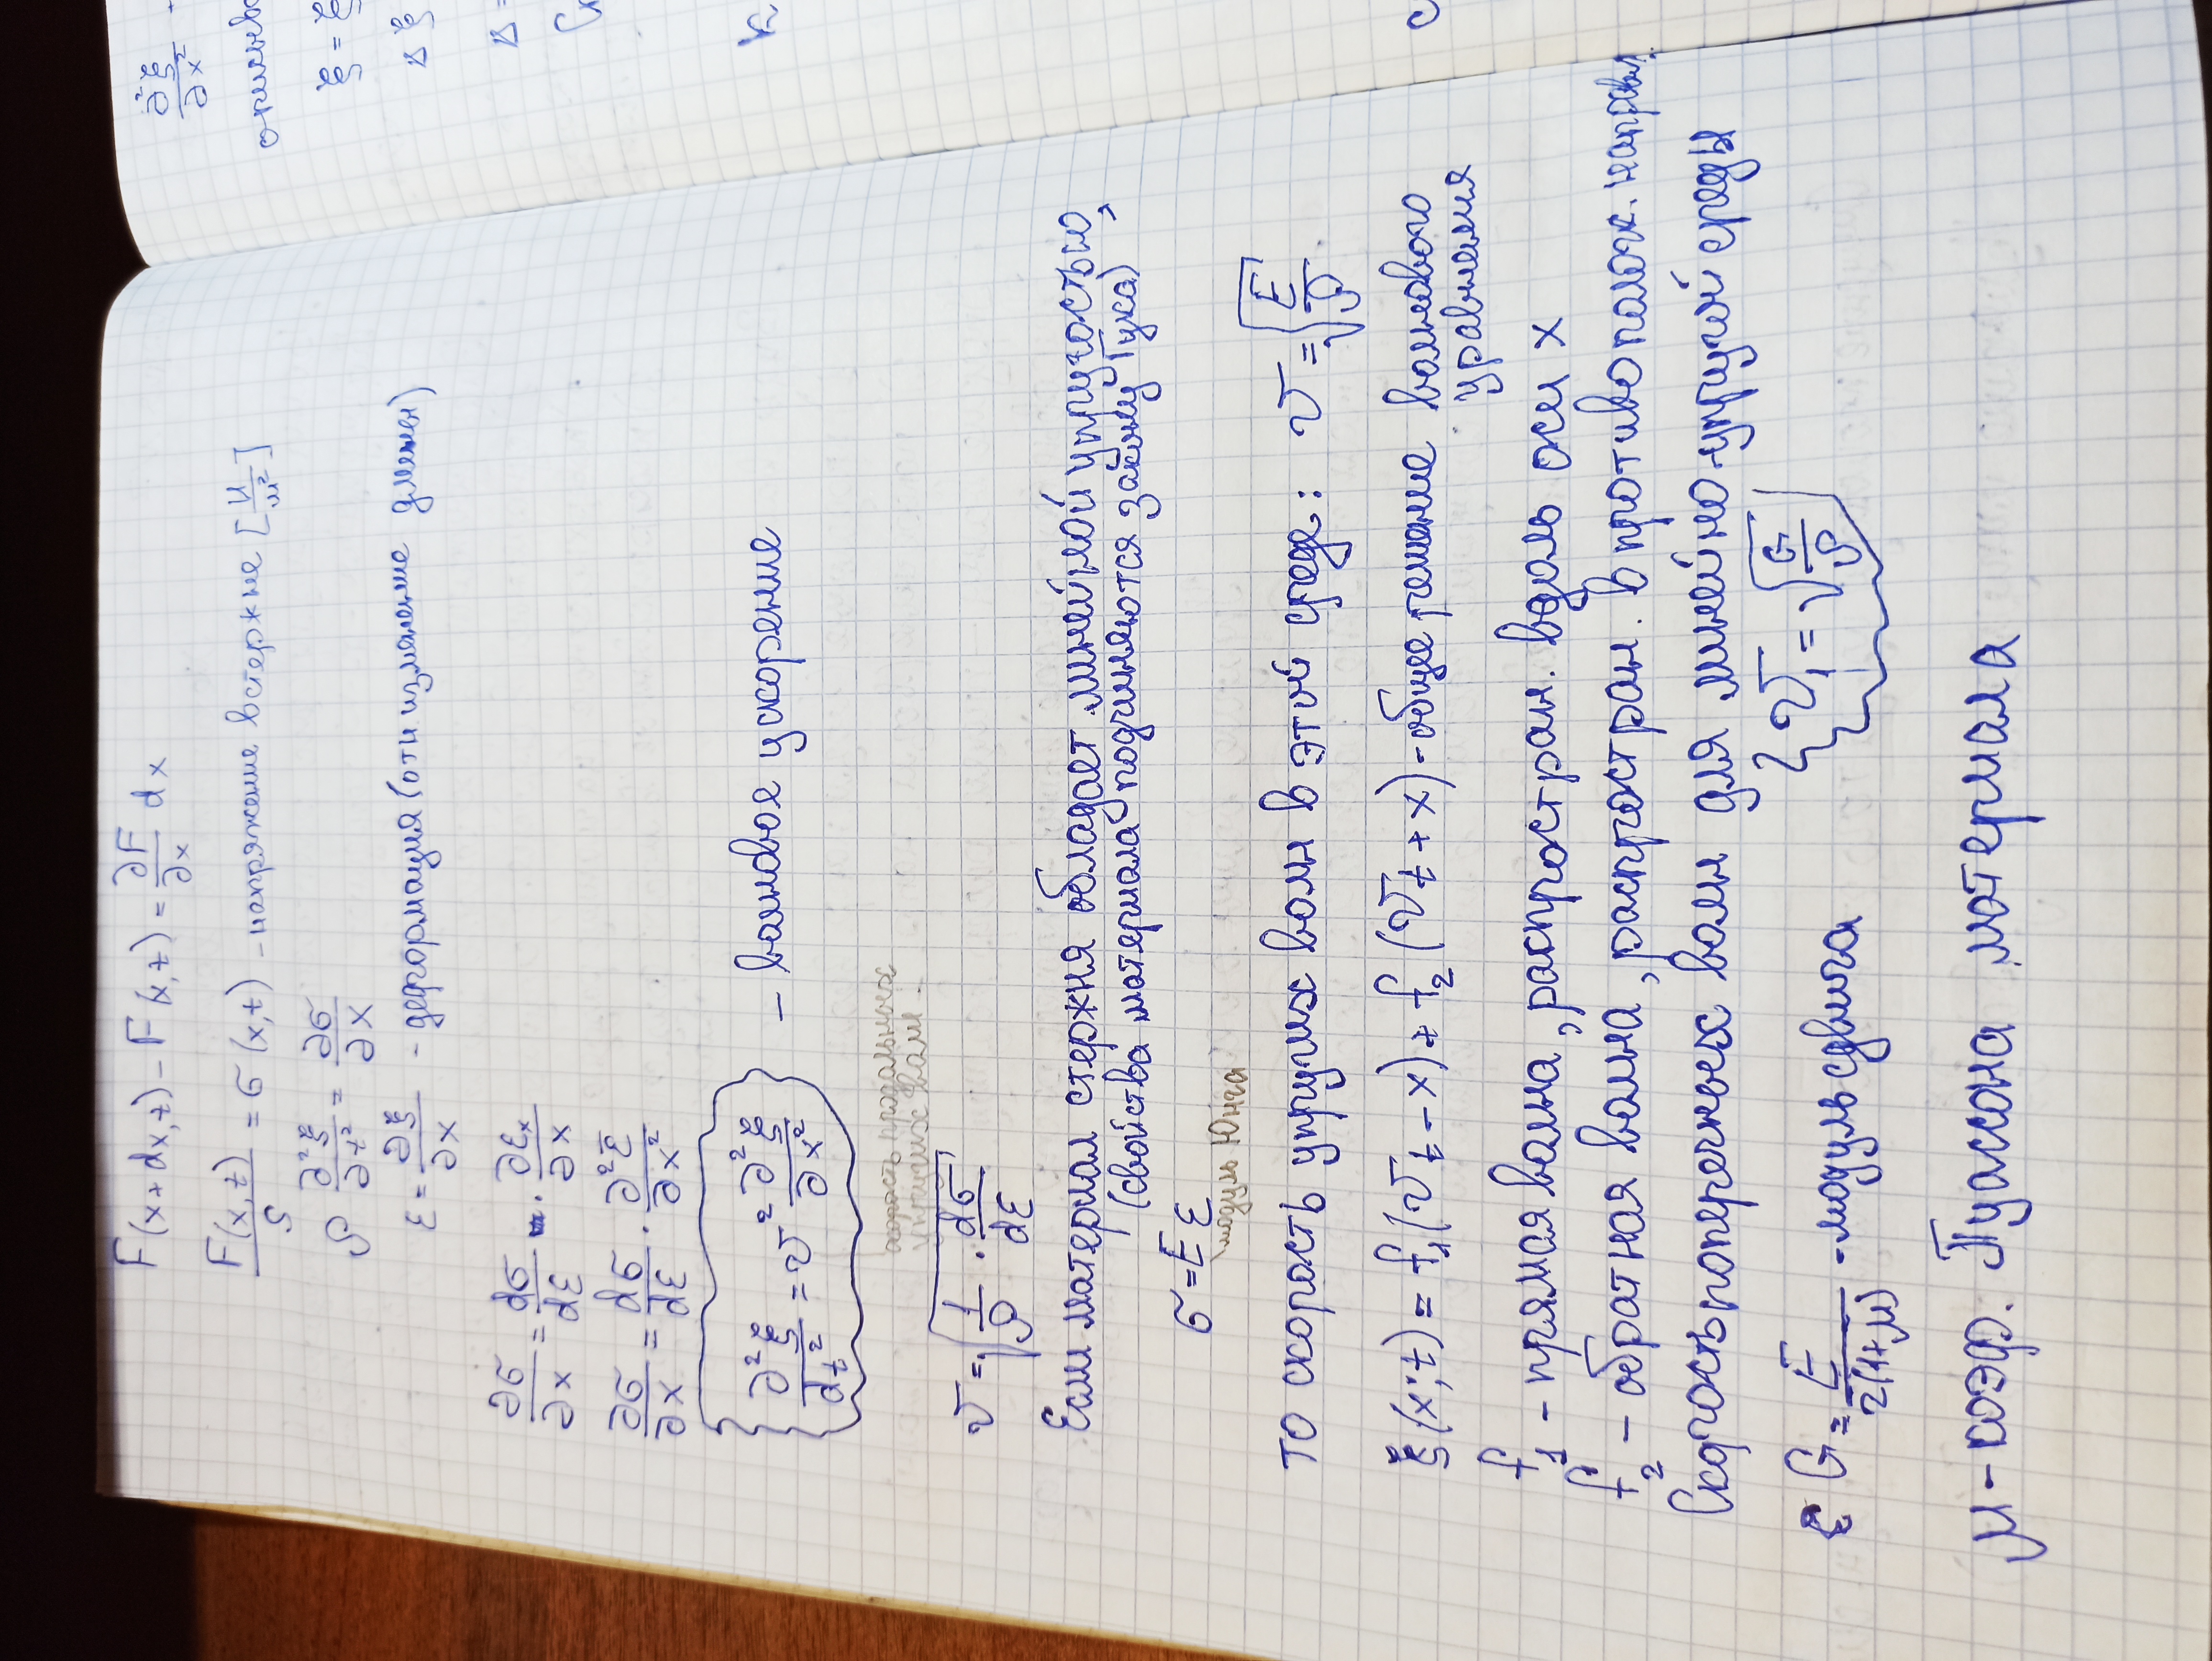 F(x+dx,t) - F(x,t) = ∂F/∂x dx
F(x,t)/S = σ(x,t) - напряжение в стержне [Н/м²]
ρ ∂²ξ/∂t² = ∂σ/∂x
ε = ∂ξ/∂x - деформация (отн изменение длины)
∂σ/∂x = dσ/dε · ∂εₓ/∂x
∂σ/∂x = dσ/dε · ∂²ξ/∂x²
∂²ξ/dt² = v² ∂²ξ/∂x² - волновое ускорение
скорость продольных
упругих волн.
v = √(1/ρ · dσ/dε)
Если материал стержня обладает линейной упругостью,
(свойства материала подчиняются закону Гука)
σ = Eε
модуль Юнга
то скорость упругих волн в этой среде: v = √(E/ρ)
ξ(x;t) = f₁(vt - x) + f₂(vt + x) - общее решение волнового
уравнения
f₁ - прямая волна, распростран. вдоль оси x
f₂ - обратная волна, распростран. в противополож. направл.
Скорость поперечных волн для линейно-упругой среды
v₁ = √(G/ρ)
G = E/2(1+μ) - модуль сдвига
μ - коэф. Пуассона материала
∂²ξ/∂x²
ξ = ξ
Δ ξ
Δ =
k